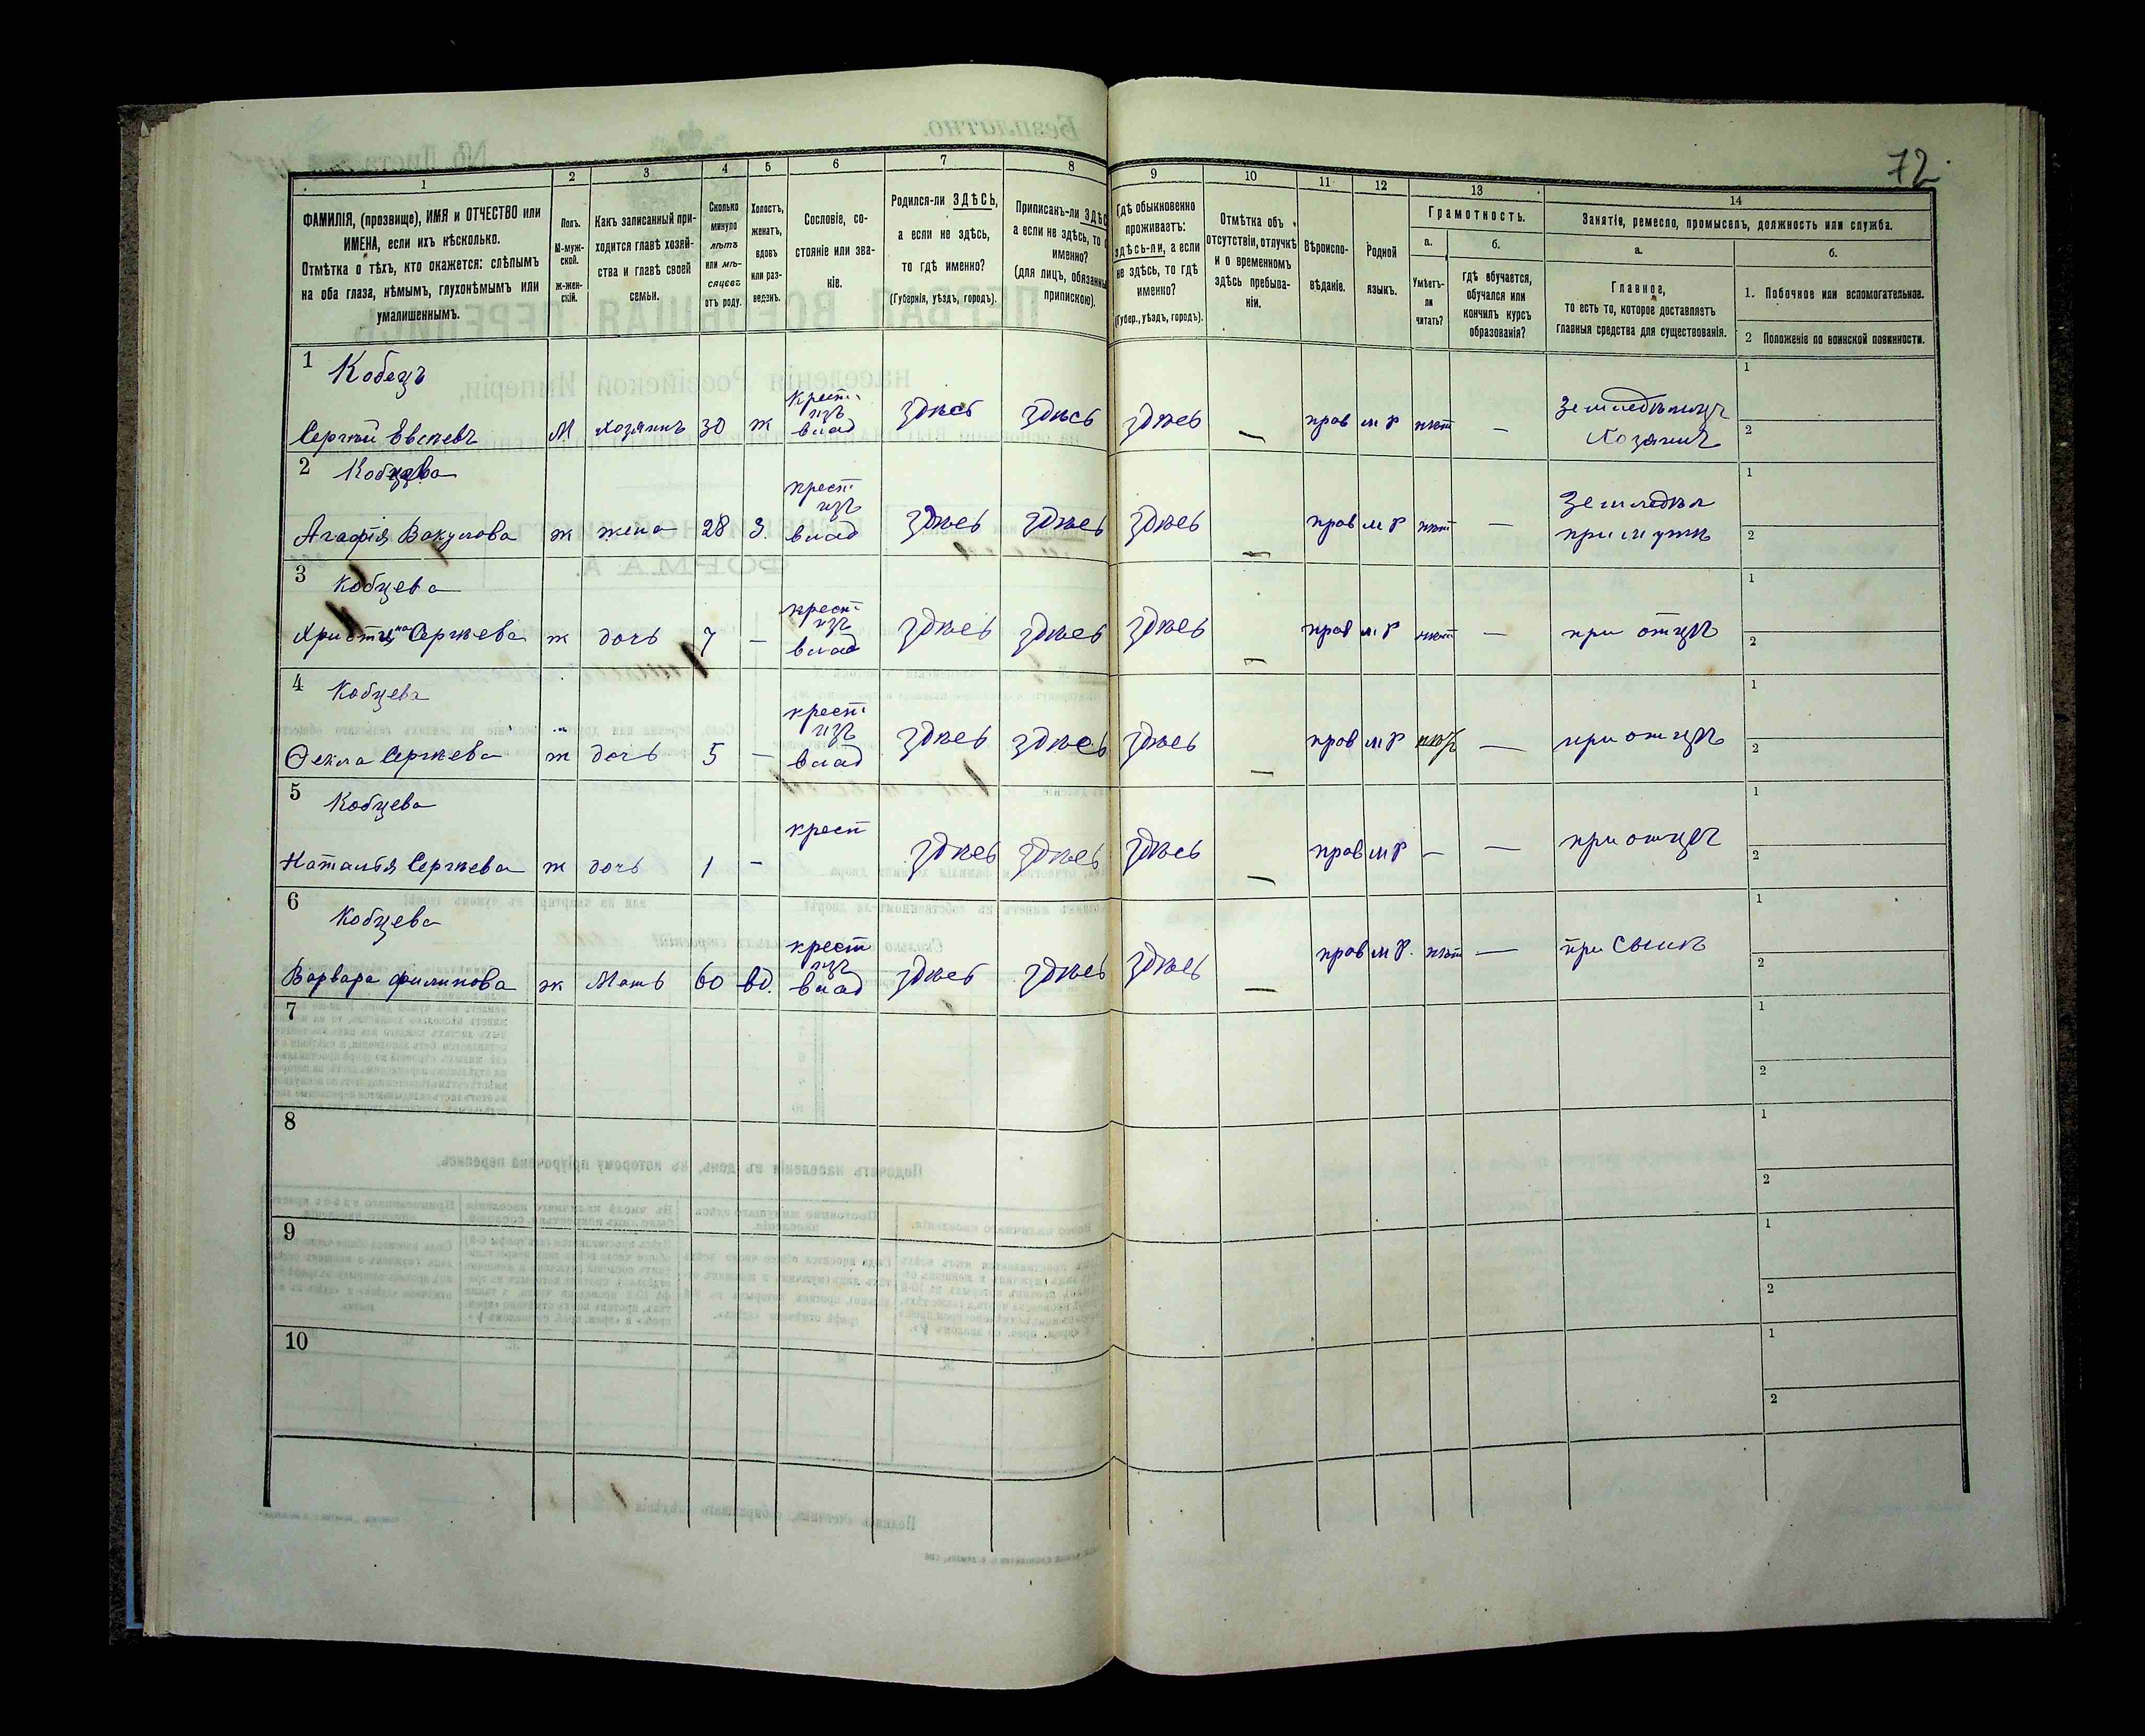 72
1 2 3 4 5 6 7 8 9 10 11 12 13 14
ФАМИЛІЯ, (прозвище), ИМЯ и ОТЧЕСТВО или
ИМЕНА, если ихъ нѣсколько.
Отмѣтка о тѣхъ, кто окажется: слѣпымъ
на оба глаза, нѣмымъ, глухонѣмымъ или
умалишеннымъ.
Полъ.
М-муж-
ской.
ж-жен-
скій.
Какъ записанный при-
ходится главѣ хозяй-
ства и главѣ своей
семьи.
Сколько
минуло
лѣтъ
или мѣ-
сяцевъ
отъ роду.
Холостъ,
женатъ,
вдовъ
или раз-
веденъ.
Сословіе, со-
стояніе или зва-
ніе.
Родился-ли ЗДѢСЬ,
а если не здѣсь,
то гдѣ именно?
(Губернія, уѣздъ, городъ).
Приписанъ-ли
а если не здѣсь, то
именно?
(для лицъ,
припискою).
Гдѣ обыкновенно
проживаетъ:
здѣсь-ли, а если
не здѣсь, то гдѣ
именно?
(Губер., уѣздъ, городъ).
Отмѣтка объ
отсутствіи, отлучкѣ
и о временномъ
здѣсь пребыва-
ніи.
Вѣроиспо-
вѣданіе.
Родной
языкъ.
Грамотность.
а.
Умѣетъ-
ли
читать?
б.
гдѣ обучается,
обучался или
кончилъ курсъ
образованія?
Занятіе, ремесло, промыселъ, должность или служба.
а.
Главное,
то есть то, которое доставляетъ
главныя средства для существованія.
б.
1. Побочное или вспомогательное.
2 Положеніе по воинской повинности.
1 Кобецъ
Сергѣй Евсѣевъ М хозяинъ 30 ж крест. изъ влад здѣсь здѣсь здѣсь — прав м р нѣт — Земледѣлецъ Хозяинъ 1 2
2 Кобцева
Агафія Вакулова ж жена 28 З. крест изъ влад здѣсь здѣсь здѣсь — прав м р нѣт — Земледѣл при мужѣ 1 2
3 Кобцева
Христина Сергѣева ж дочь 7 — крест изъ влад здѣсь здѣсь здѣсь — прав м р нѣт — при отцѣ 1 2
4 Кобцева
Ѳекла Сергѣева ж дочь 5 — крест изъ влад здѣсь здѣсь здѣсь — прав м р нѣт — при отцѣ 1 2
5 Кобцева
Наталья Сергѣева ж дочь 1 — крест здѣсь здѣсь здѣсь — прав м р — — при отцѣ 1 2
6 Кобцева
Варвара Филипова ж Мать 60 вд. крест изъ влад здѣсь здѣсь здѣсь — прав м р. нѣт — при сынѣ 1 2
7 1 2
8 1 2
9 1 2
10 1 2